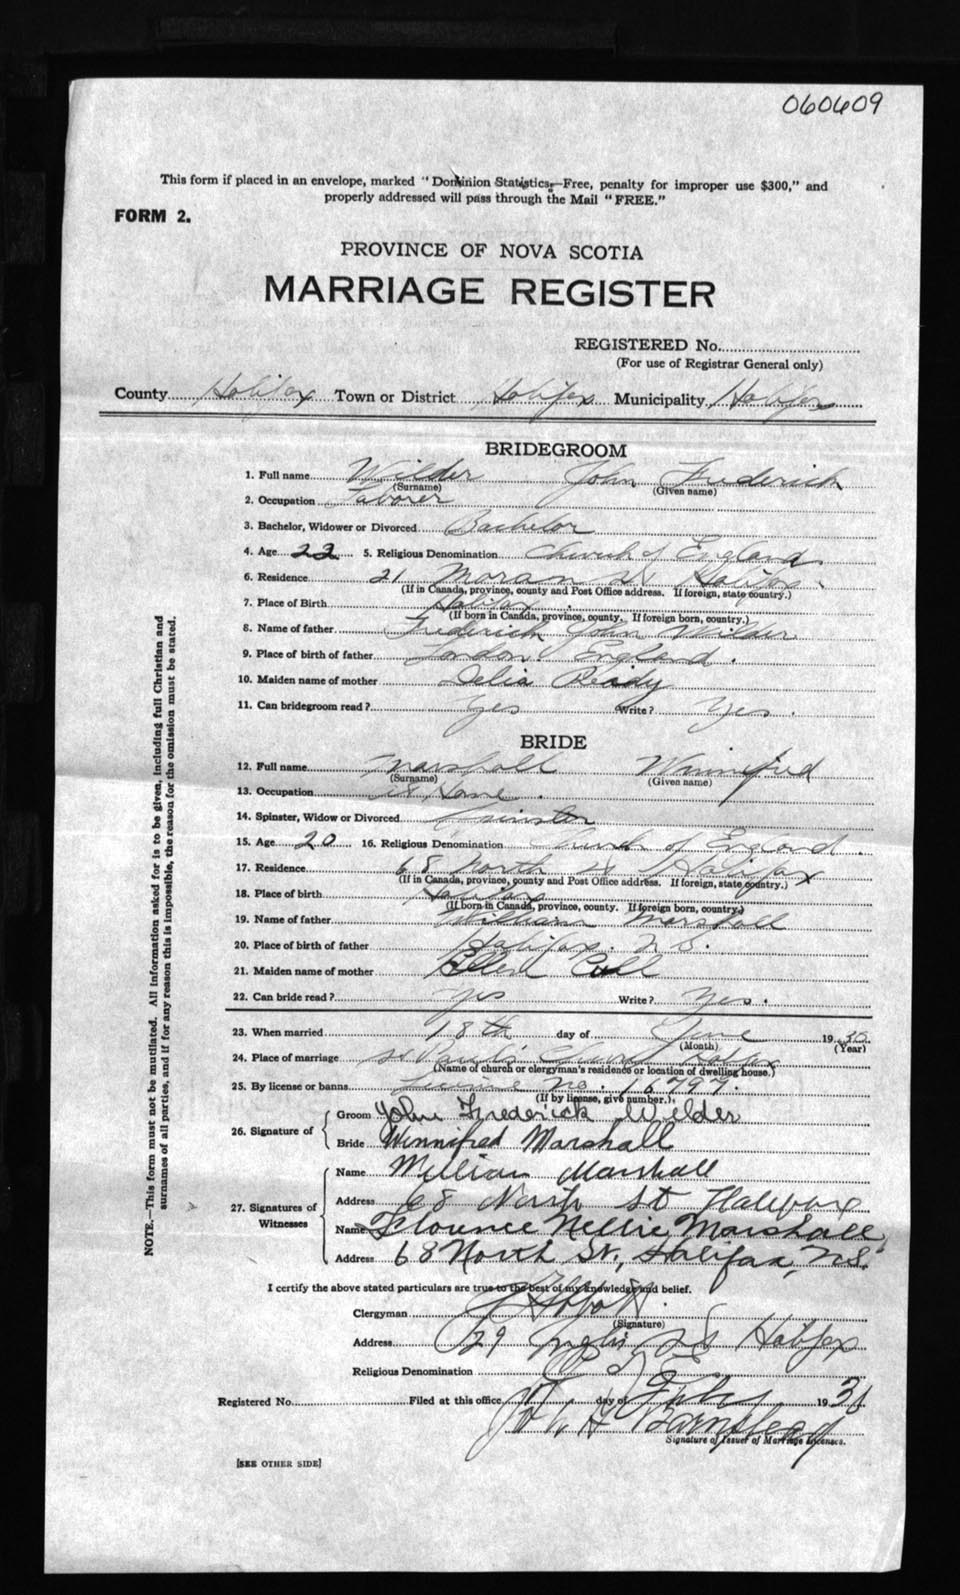 060609
This form if placed in an envelope, marked "Dominion Statistics—Free, penalty for improper use $300," and
properly addressed will pass through the Mail "FREE."
FORM 2.
PROVINCE OF NOVA SCOTIA
MARRIAGE REGISTER
REGISTERED No.
(For use of Registrar General only)
County Halifax Town or District Halifax Municipality Halifax
BRIDEGROOM
1. Full name Wilder John Frederick
(Surname) (Given name)
2. Occupation Laborer
3. Bachelor, Widower or Divorced Bachelor
4. Age 22 5. Religious Denomination Church of England
6. Residence 21 Moran St Halifax
(If in Canada, province, county and Post Office address. If foreign, state country.)
7. Place of Birth Halifax
(If born in Canada, province, county. If foreign born, country.)
8. Name of father Frederick John Wilder
9. Place of birth of father London England.
10. Maiden name of mother Delia Ready
11. Can bridegroom read? Yes Write? Yes.
BRIDE
12. Full name Marshall Winnifred
(Surname) (Given name)
13. Occupation At Home.
14. Spinster, Widow or Divorced Spinster
15. Age 20 16. Religious Denomination Church of England.
17. Residence 68 North St Halifax
(If in Canada, province, county and Post Office address. If foreign, state country.)
18. Place of birth Halifax
(If born in Canada, province, county. If foreign born, country.)
19. Name of father William Marshall
20. Place of birth of father Halifax. N.S.
21. Maiden name of mother Ellen
22. Can bride read? Yes Write? Yes.
23. When married 18th day of June 19
(Month) (Year)
24. Place of marriage St Paul's Church Halifax
(Name of church or clergyman's residence or location of dwelling house.)
25. By license or banns License No. 16797.
(If by license, give number.)
26. Signature of
Groom John Frederick Wilder
Bride Winnifred Marshall
27. Signatures of Witnesses
Name William Marshall
Address 68 North St Halifax
Name Florence Nellie Marshall
Address 68 North St., Halifax, N.S.
I certify the above stated particulars are true to the best of my knowledge and belief.
Clergyman
(Signature)
Address 129 Inglis St Halifax
Religious Denomination C of E
Registered No. Filed at this office day of 1931
Barnstead
Signature of Issuer of Marriage Licenses.
[SEE OTHER SIDE]
NOTE.—This form must not be mutilated. All information asked for is to be given, including full Christian and
surnames of all parties, and if for any reason this is impossible, the reason for the omission must be stated.